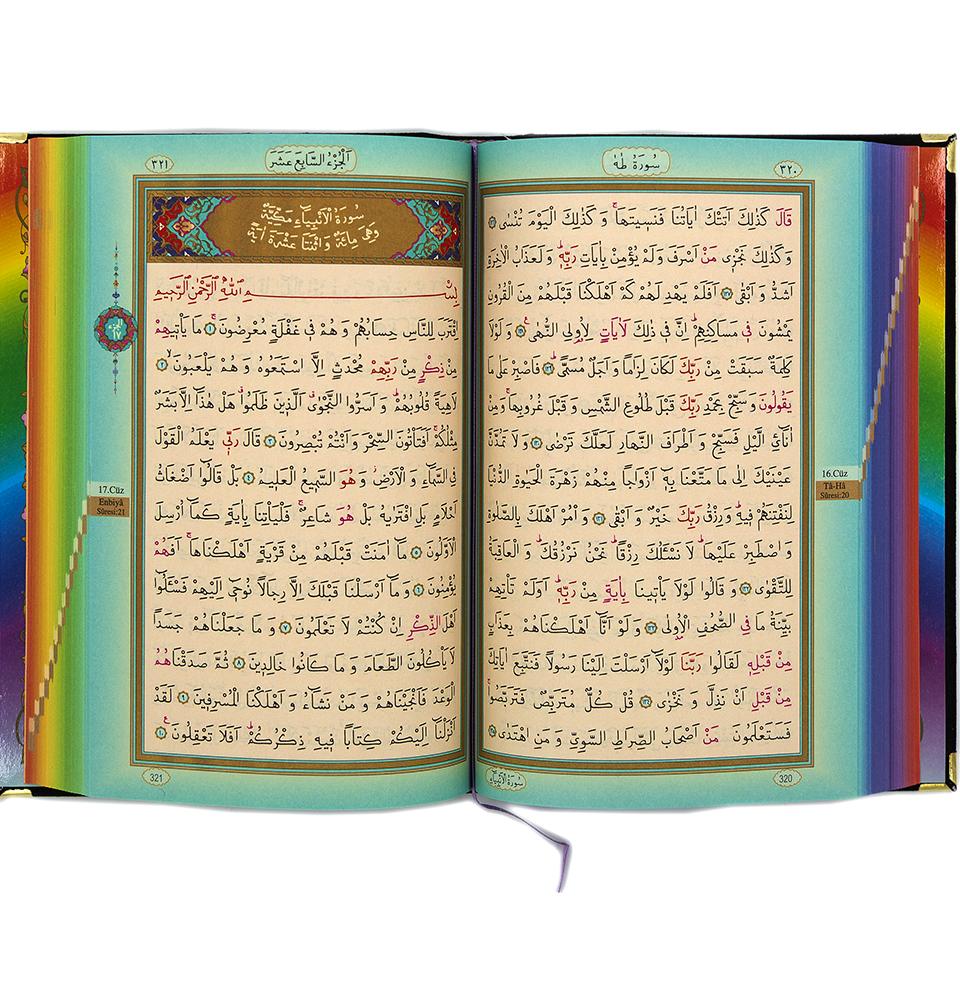 ٣٢٠
سورة طه
قَالَ كَذٰلِكَ اَتَتْكَ اٰيَاتُنَا فَنَس۪يتَهَاۚ وَكَذٰلِكَ الْيَوْمَ تُنْسٰى ﴿١٢٦﴾
وَكَذٰلِكَ نَجْز۪ي مَنْ اَسْرَفَ وَلَمْ يُؤْمِنْ بِاٰيَاتِ رَبِّه۪ۜ وَلَعَذَابُ الْاٰخِرَةِ
اَشَدُّ وَاَبْقٰى ﴿١٢٧﴾ اَفَلَمْ يَهْدِ لَهُمْ كَمْ اَهْلَكْنَا قَبْلَهُمْ مِنَ الْقُرُونِ
يَمْشُونَ ف۪ي مَسَاكِنِهِمْۜ اِنَّ ف۪ي ذٰلِكَ لَاٰيَاتٍ لِاُو۬لِي النُّهٰى۟ ﴿١٢٨﴾ وَلَوْلَا
كَلِمَةٌ سَبَقَتْ مِنْ رَبِّكَ لَكَانَ لِزَامًا وَاَجَلٌ مُسَمًّىۜ ﴿١٢٩﴾ فَاصْبِرْ عَلٰى مَا
يَقُولُونَ وَسَبِّحْ بِحَمْدِ رَبِّكَ قَبْلَ طُلُوعِ الشَّمْسِ وَقَبْلَ غُرُوبِهَاۚ وَمِنْ
اٰنَٓائِ الَّيْلِ فَسَبِّحْ وَاَطْرَافَ النَّهَارِ لَعَلَّكَ تَرْضٰى ﴿١٣٠﴾ وَلَا تَمُدَّنَّ
عَيْنَيْكَ اِلٰى مَا مَتَّعْنَا بِه۪ٓ اَزْوَاجًا مِنْهُمْ زَهْرَةَ الْحَيٰوةِ الدُّنْيَا
لِنَفْتِنَهُمْ ف۪يهِۜ وَرِزْقُ رَبِّكَ خَيْرٌ وَاَبْقٰى ﴿١٣١﴾ وَأْمُرْ اَهْلَكَ بِالصَّلٰوةِ
وَاصْطَبِرْ عَلَيْهَاۜ لَا نَسْـَٔلُكَ رِزْقًاۜ نَحْنُ نَرْزُقُكَۜ وَالْعَاقِبَةُ
لِلتَّقْوٰى ﴿١٣٢﴾ وَقَالُوا لَوْلَا يَأْت۪ينَا بِاٰيَةٍ مِنْ رَبِّه۪ۜ اَوَلَمْ تَأْتِهِمْ
بَيِّنَةُ مَا فِي الصُّحُفِ الْاُو۫لٰى ﴿١٣٣﴾ وَلَوْ اَنَّٓا اَهْلَكْنَاهُمْ بِعَذَابٍ
مِنْ قَبْلِه۪ لَقَالُوا رَبَّنَا لَوْلَٓا اَرْسَلْتَ اِلَيْنَا رَسُولًا فَنَتَّبِعَ اٰيَاتِكَ
مِنْ قَبْلِ اَنْ نَذِلَّ وَنَخْزٰى ﴿١٣٤﴾ قُلْ كُلٌّ مُتَرَبِّصٌ فَتَرَبَّصُواۚ
فَسَتَعْلَمُونَ مَنْ اَصْحَابُ الصِّرَاطِ السَّوِيِّ وَمَنِ اهْتَدٰى ﴿١٣٥﴾
320
سورة الأنبياء
16.Cüz
Tâ-Hâ
Sûresi:20
اَلْجُزْءُ السَّابِعَ عَشَرَ
٣٢١
سُورَةُ الْاَنْبِيَاءِ مَكِّيَّةٌ
وَهِيَ مِائَةٌ وَاثْنَتَا عَشْرَةَ اٰيَةً
بِسْمِ اللّٰهِ الرَّحْمٰنِ الرَّح۪يمِ
اِقْتَرَبَ لِلنَّاسِ حِسَابُهُمْ وَهُمْ ف۪ي غَفْلَةٍ مُعْرِضُونَۚ ﴿١﴾ مَا يَأْت۪يهِمْ
مِنْ ذِكْرٍ مِنْ رَبِّهِمْ مُحْدَثٍ اِلَّا اسْتَمَعُوهُ وَهُمْ يَلْعَبُونَۙ ﴿٢﴾
لَاهِيَةً قُلُوبُهُمْۜ وَاَسَرُّوا النَّجْوٰىۗ اَلَّذ۪ينَ ظَلَمُواۗ هَلْ هٰذَٓا اِلَّا بَشَرٌ
مِثْلُكُمْۚ اَفَتَأْتُونَ السِّحْرَ وَاَنْتُمْ تُبْصِرُونَ ﴿٣﴾ قَالَ رَبّ۪ي يَعْلَمُ الْقَوْلَ
فِي السَّمَٓاءِ وَالْاَرْضِۘ وَهُوَ السَّم۪يعُ الْعَل۪يمُ ﴿٤﴾ بَلْ قَالُٓوا اَضْغَاثُ
اَحْلَامٍ بَلِ افْتَرٰيهُ بَلْ هُوَ شَاعِرٌۚ فَلْيَأْتِنَا بِاٰيَةٍ كَمَٓا اُرْسِلَ
الْاَوَّلُونَ ﴿٥﴾ مَٓا اٰمَنَتْ قَبْلَهُمْ مِنْ قَرْيَةٍ اَهْلَكْنَاهَاۚ اَفَهُمْ
يُؤْمِنُونَ ﴿٦﴾ وَمَٓا اَرْسَلْنَا قَبْلَكَ اِلَّا رِجَالًا نُوح۪ٓي اِلَيْهِمْ فَسْـَٔلُٓوا
اَهْلَ الذِّكْرِ اِنْ كُنْتُمْ لَا تَعْلَمُونَ ﴿٧﴾ وَمَا جَعَلْنَاهُمْ جَسَدًا
لَا يَأْكُلُونَ الطَّعَامَ وَمَا كَانُوا خَالِد۪ينَ ﴿٨﴾ ثُمَّ صَدَقْنَاهُمُ
الْوَعْدَ فَاَنْجَيْنَاهُمْ وَمَنْ نَشَٓاءُ وَاَهْلَكْنَا الْمُسْرِف۪ينَ ﴿٩﴾ لَقَدْ
اَنْزَلْنَٓا اِلَيْكُمْ كِتَابًا ف۪يهِ ذِكْرُكُمْۜ اَفَلَا تَعْقِلُونَ۟ ﴿١٠﴾
321
الجزء
١٧
17.Cüz
Enbiyâ
Sûresi:21